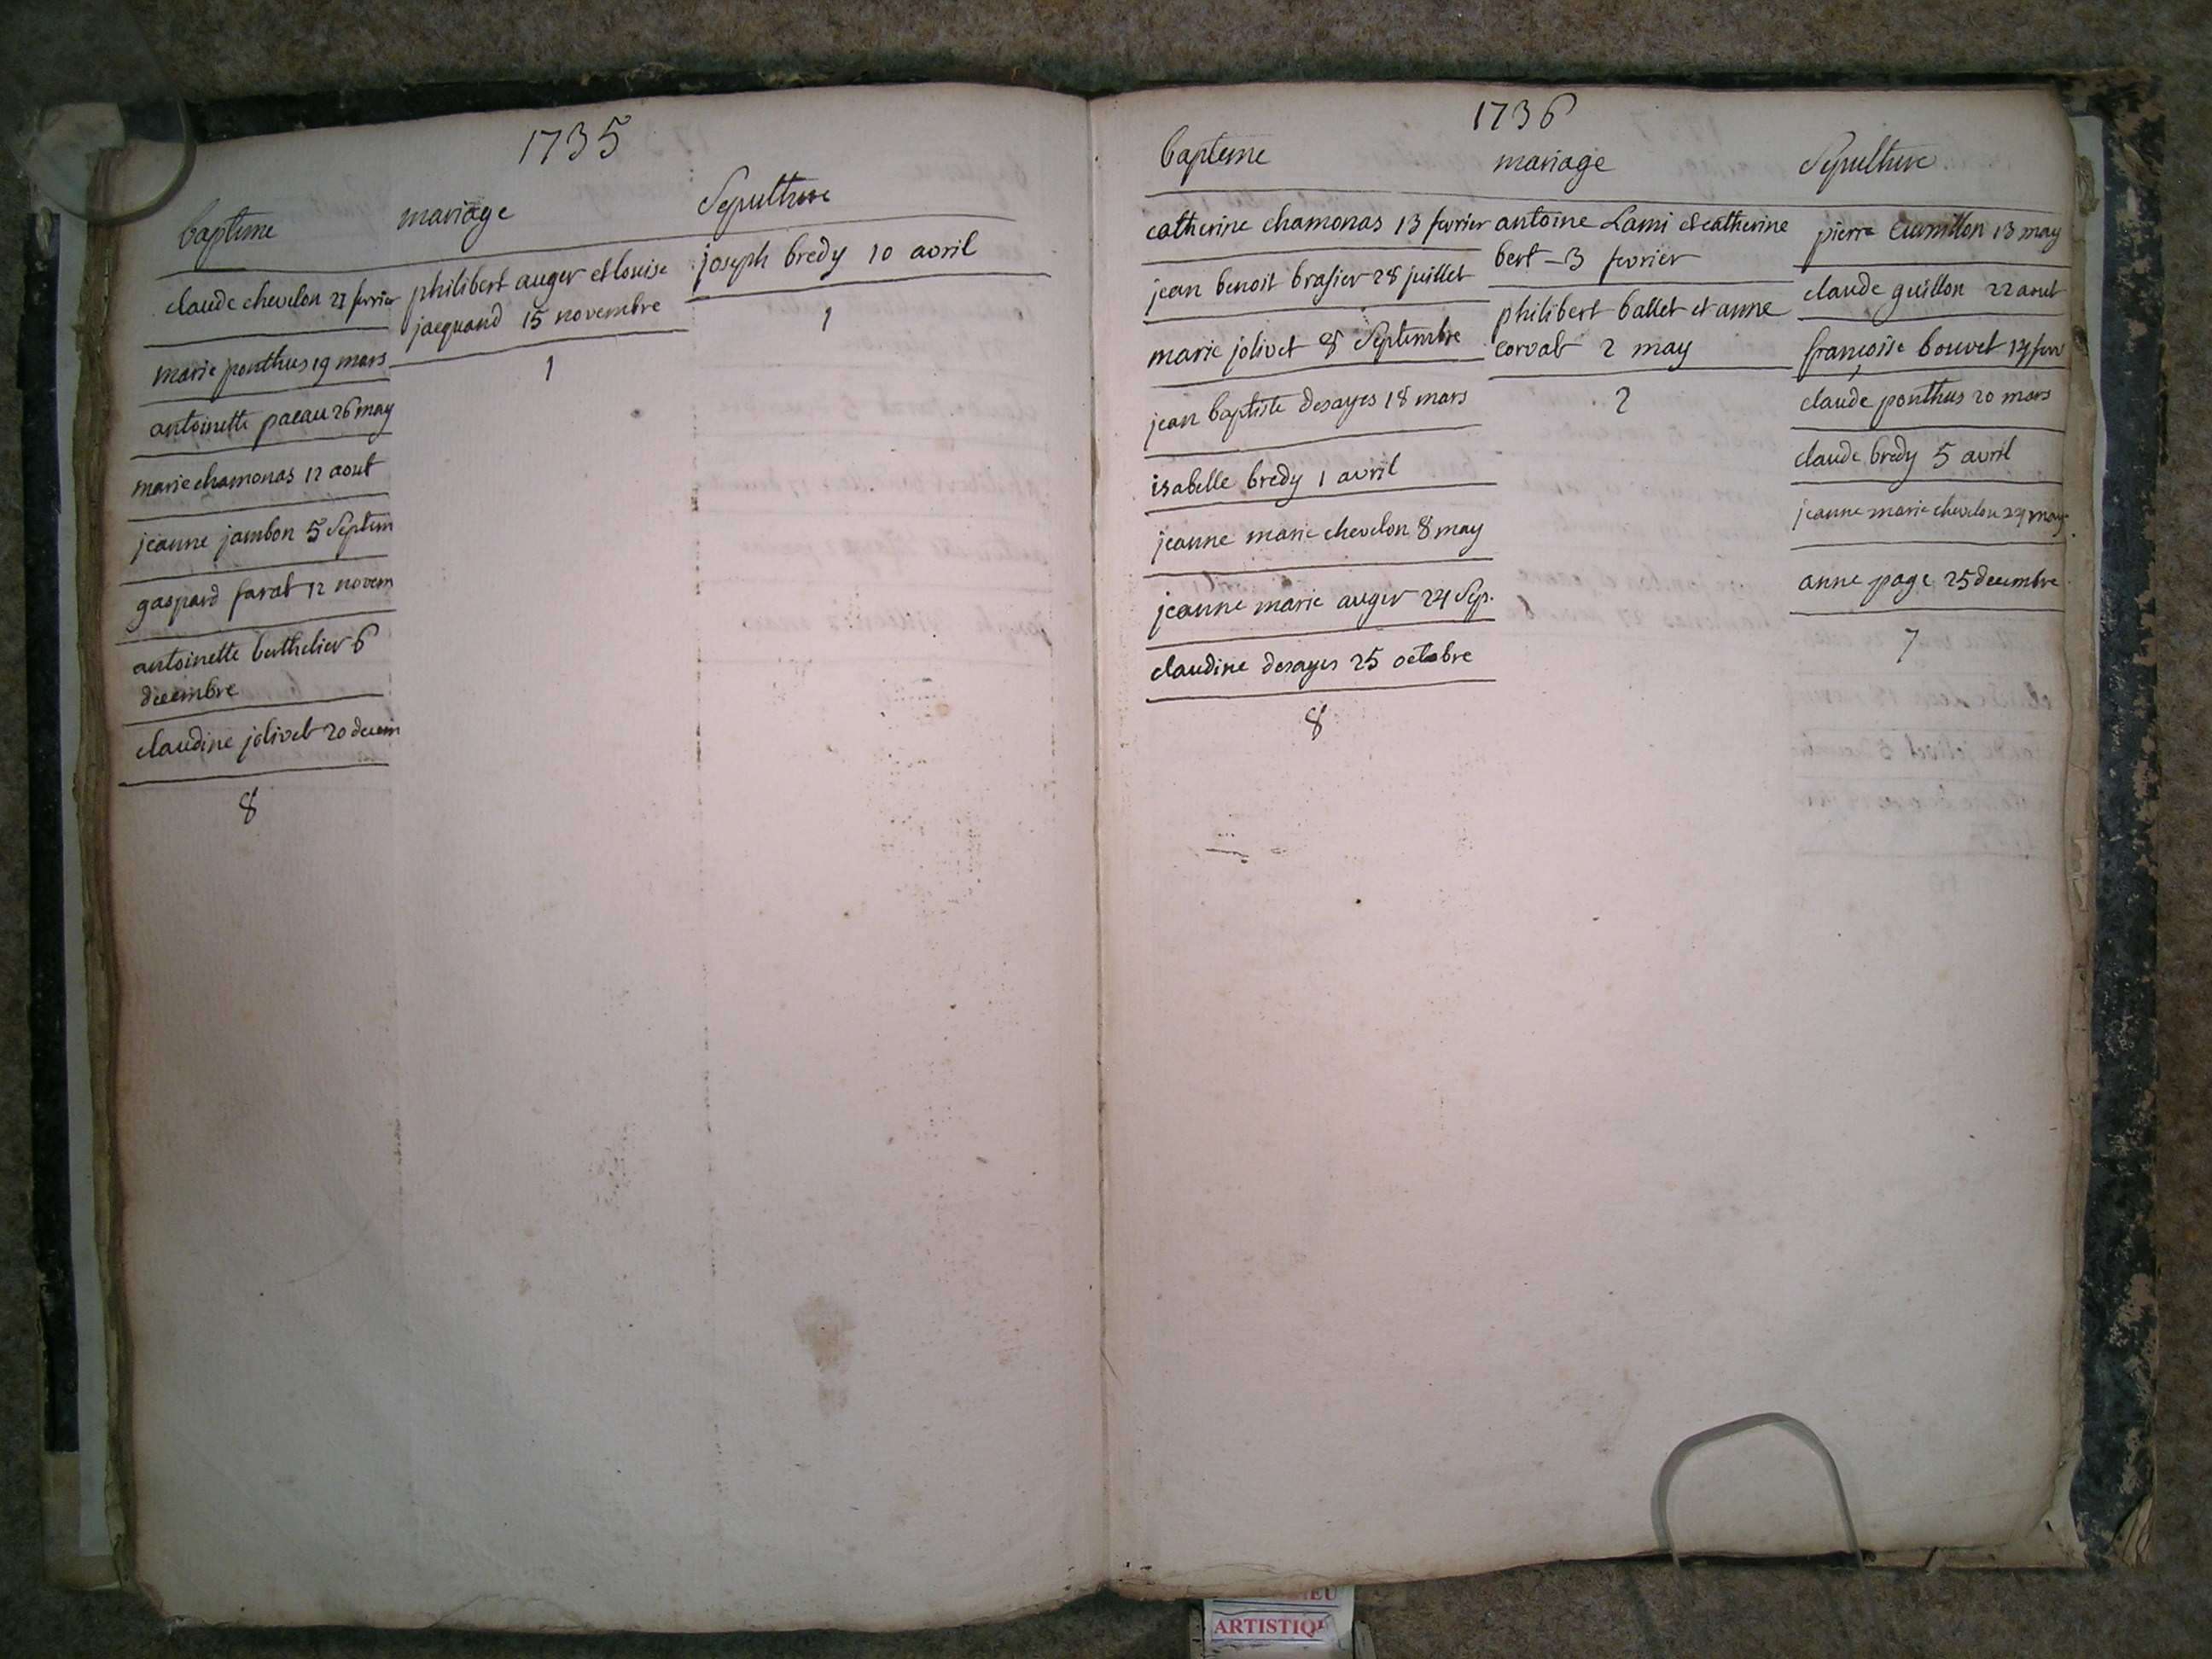 1735
bapteme
claude chevelon 27 fevrier
marie ponthus 19 mars
antoinette pacau 26 may
marie chamonas 12 aout
jeanne jambon 5 Septem
gaspard farat 12 novem
antoinette berthelier 6
decembre
claudine jolivet 20 decem
8
mariage
philibert auger et louise
jacquand 15 novembre
1
Sepulture
joseph bredy 10 avril
1
1736
bapteme
catherine chamonas 13 fevrier
jean benoit brasier 28 juillet
marie jolivet 8 Septembre
jean baptiste desayes 18 mars
isabelle bredy 1 avril
jeanne marie chevelon 8 may
jeanne marie auger 24 Sep.
claudine desayes 25 octobre
8
mariage
antoine Lami et catherine
bert 3 fevrier
philibert ballet et anne
corval 2 may
2
Sepulture
pierre 13 may
claude guillon 22 aout
françoise bouvet 14 fevr
claude ponthus 20 mars
claude bredy 5 avril
jeanne marie chevelon 24 may
anne page 25 decembre
7
IEU
ARTISTIQ